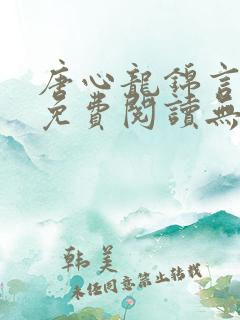 唐心龍錦言
免費閱讀無
韩美
未经同意禁止转载